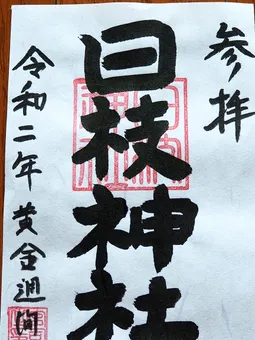 参拝
日枝神社
令和二年 黄金週间